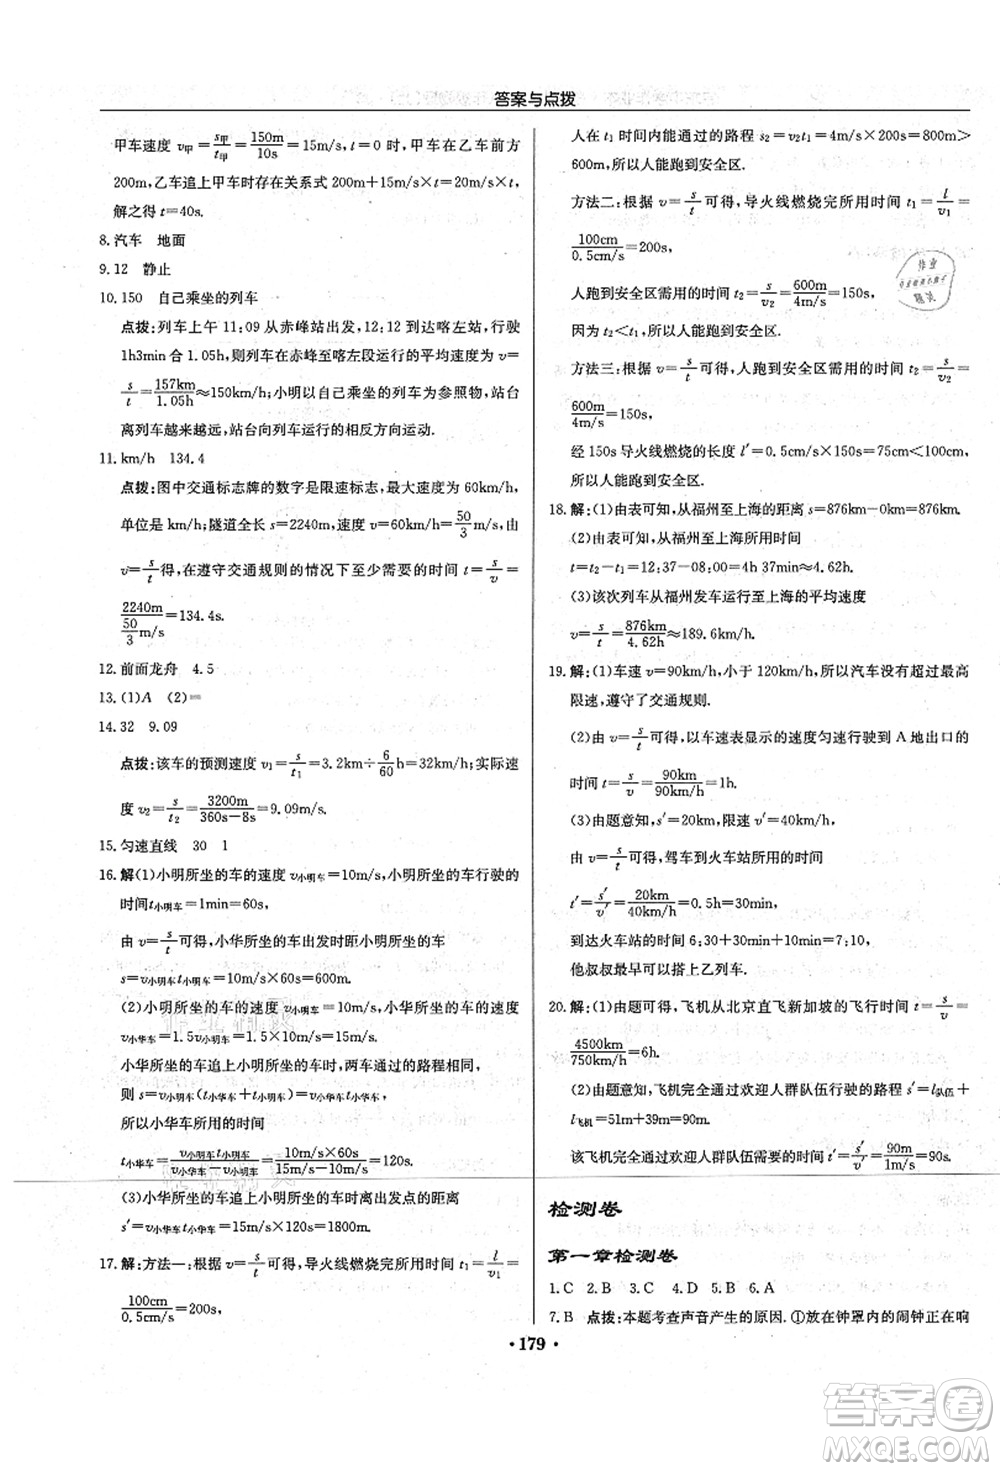 答案与点拨
甲车速度 v甲=s甲/t甲=150m/10s=15m/s, t=0 时, 甲车在乙车前方
200m, 乙车追上甲车时存在关系式 200m+15m/s×t=20m/s×t,
解之得 t=40s.
8. 汽车 地面
9. 12 静止
10. 150 自己乘坐的列车
点拨: 列车上午 11:09 从赤峰站出发, 12:12 到达喀左站, 行驶
1h3min 合 1.05h, 则列车在赤峰至喀左段运行的平均速度为 v=
s/t=157km/1.05h≈150km/h; 小明以自己乘坐的列车为参照物, 站台
离列车越来越远, 站台向列车运行的相对反方向运动.
11. km/h 134.4
点拨: 图中交通标志牌的数字是限速标志, 最大速度是 60km/h,
单位是 km/h; 隧道全长 s=2240m, 速度 v=60km/h=50/3 m/s, 由
v=s/t可得, 在遵守交通规则的情况下至少需要的时间 t=s/v=
2240m/(50/3 m/s)=134.4s.
12. 前面龙舟 4.5
13. (1)A (2)=
14. 32 9.09
点拨: 该车的预测速度 v1=s/t1=3.2km÷6/60h=32km/h; 实际速
度 v2=s/t2=3200m/360s-8s=9.09m/s.
15. 匀速直线 30 1
16. 解(1)小明所坐的车的速度 v小明车=10m/s, 小明所坐的车行驶的
时间 t小明车=1min=60s,
由 v=s/t可得, 小华所坐的车出发时距小明所坐的车
s=v小明车t小明车=10m/s×60s=600m.
(2)小明所坐的车的速度 v小明车=10m/s, 小华所坐的车的速度
v小华车=1.5v小明车=1.5×10m/s=15m/s,
小华所坐的车追上小明所坐的车时, 两车通过的路程相等,
则 s=v小明车(t小华车+t小明车)=v小华车t小华车,
所以小华车所用的时间
t小华车=v小明车t小明车/v小华车-v小明车=10m/s×60s/15m/s-10m/s=120s.
(3)小华所坐的车追上小明所坐的车时离出发点的距离
s′=v小华车t小华车=15m/s×120s=1800m.
17. 解: 方法一: 根据 v=s/t可得, 导火线燃烧完所用时间 t1=l/v1=
100cm/0.5cm/s=200s,
人在 t1 时间内能通过的路程 s2=v2t1=4m/s×200s=800m>
600m, 所以人能跑到安全区.
方法二: 根据 v=s/t可得, 导火线燃烧完所用时间 t1=l/v1=
100cm/0.5cm/s=200s,
人跑到安全区需用的时间 t2=s/v2=600m/4m/s=150s,
因为 t2<t1, 所以人能跑到安全区.
方法三: 根据 v=s/t可得, 人跑到安全区需用的时间 t2=s/v2=
600m/4m/s=150s,
经 150s 导火线燃烧的长度 l′=0.5cm/s×150s=75cm<100cm,
所以人能跑到安全区.
18. 解: (1)由表可知, 从福州至上海的距离 s=876km-0km=876km.
(2)由表可知, 从福州至上海所用时间
t=t2-t1=12:37-08:00=4h37min≈4.62h
(3)该次列车从福州发车运行至上海的平均速度
v=s/t=876km/4.62h≈189.6km/h.
19. 解: (1)车速 v=90km/h, 小于 120km/h, 所以汽车没有超过最高
限速, 遵守了交通规则.
(2)由 v=s/t可得, 以车速表显示的速度匀速行驶到 A 地出口的
时间 t=s/v=90km/90km/h=1h.
(3)由题意知, s′=20km, 限速 v′=40km/h,
由 v=s/t可得, 驾车到火车站所用的时间
t′=s′/v′=20km/40km/h=0.5h=30min,
到达火车站的时间 6:30+30min+10min=7:10,
他叔叔可以搭上乙列车.
20. 解: (1)由题可得, 飞机从北京直飞新加坡的飞行时间 t=s/v=
4500km/750km/h=6h.
(2)由题意知, 飞机完全通过欢迎人群队伍行驶的路程 s′=l队伍+
l飞机=51m+39m=90m,
该飞机完全通过欢迎人群队伍需要的时间 t′=s′/v′=90m/1m/s=90s.
检测卷
第一章检测卷
1. C 2. B 3. C 4. D 5. B 6. A
7. B 点拨: 本题考查声音产生的原因. ①放在钟罩内的闹钟正在响
· 179 ·
作业
精灵
答案圈
MXQE.COM